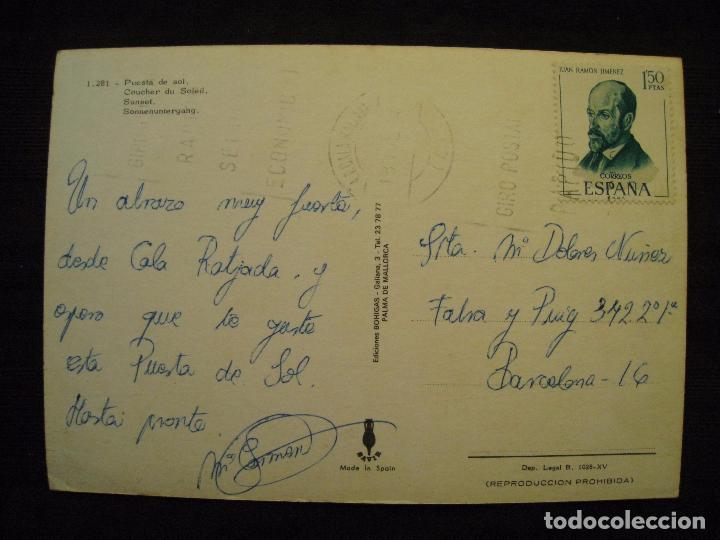 1.281 - Puesta de sol.
Coucher du Soleil.
Sunset.
Sonnenuntergang.
GIRO
RAPI
SE
ECONOMICO
GIRO POSTAL
RAPIDO
JUAN RAMON JIMENEZ
1'50
PTAS
CORREOS
ESPAÑA
Un abrazo muy fuerte,
desde Cala Ratjada. y
espero que te guste
esta Puesta de Sol.
Hasta pronto.
Mª Carmen
Ediciones BOHIGAS - Galiana, 3 - Tel. 23 78 77
PALMA DE MALLORCA
Srta. Mª Dolores Nuñez
Falsa y Puig 342 2º 1ª
Barcelona - 16
Made in Spain
Dep. Legal B. 1028-XV
(REPRODUCCION PROHIBIDA)
todocoleccion
todocoleccion.net